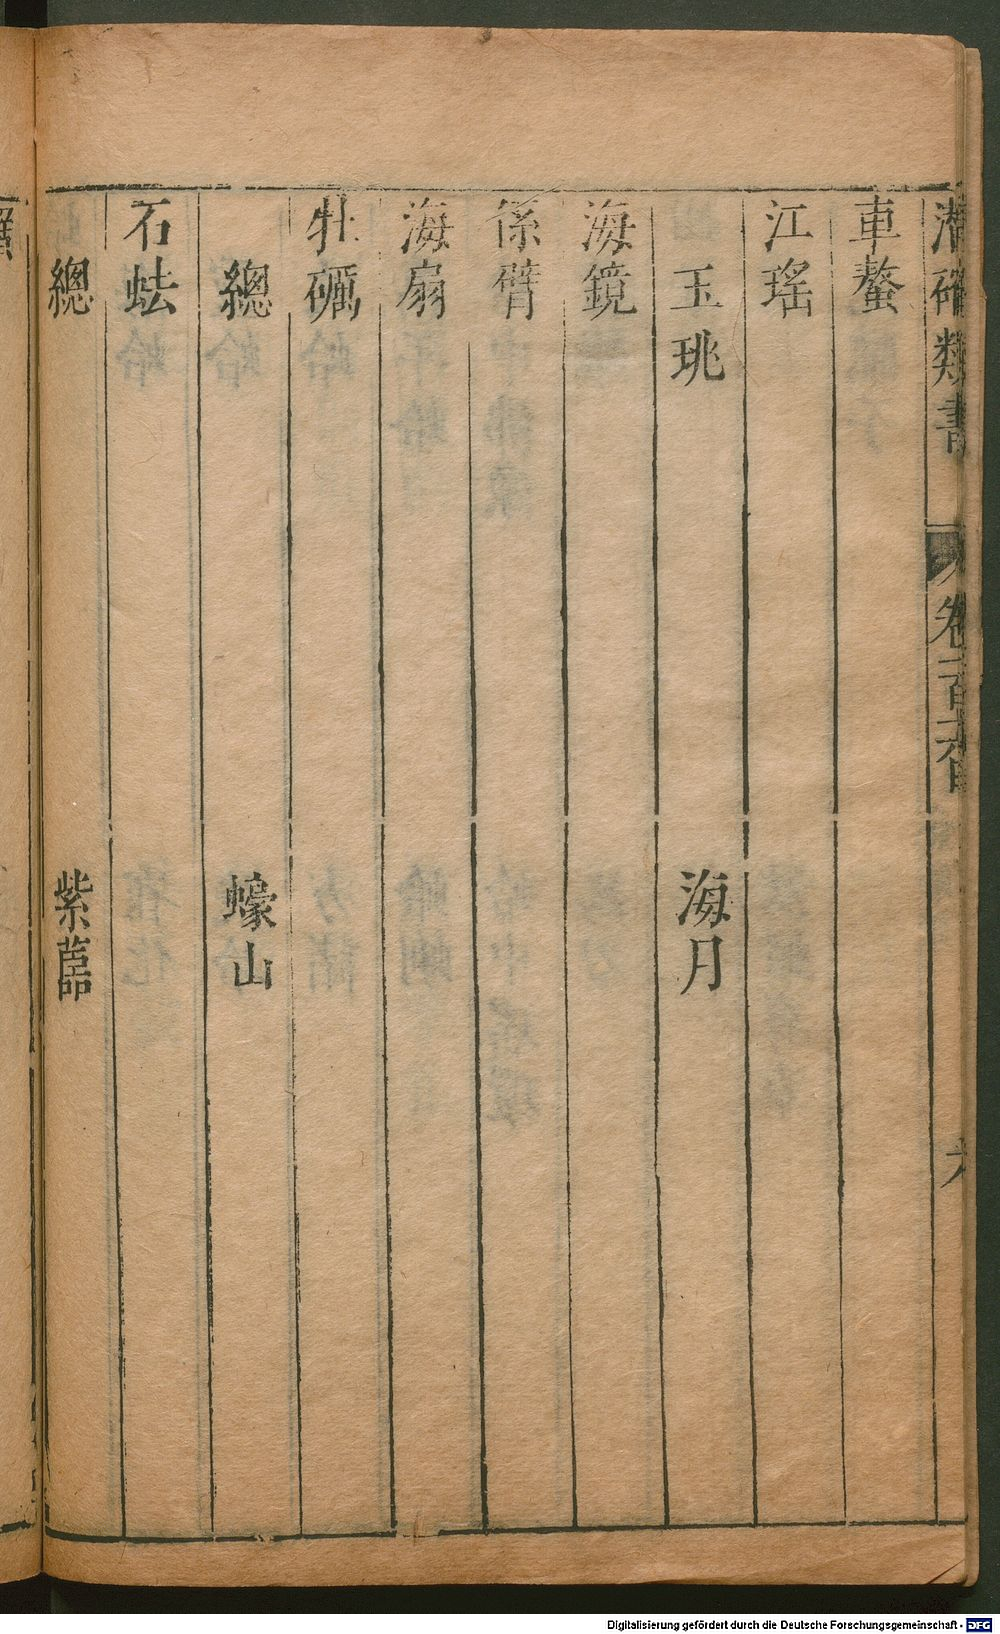 潛確類書
卷一百六目
車螯
江瑤
玉珧 海月
海鏡
係臂
海扇
牡礪
總 蠔山
石𧉧
總 紫
Digitalisierung gefördert durch die Deutsche Forschungsgemeinschaft - DFG